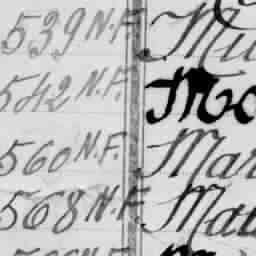 539 N.F. Mu
542 N.F. Mc
560 N.F. Mar
568 N.F. Mat